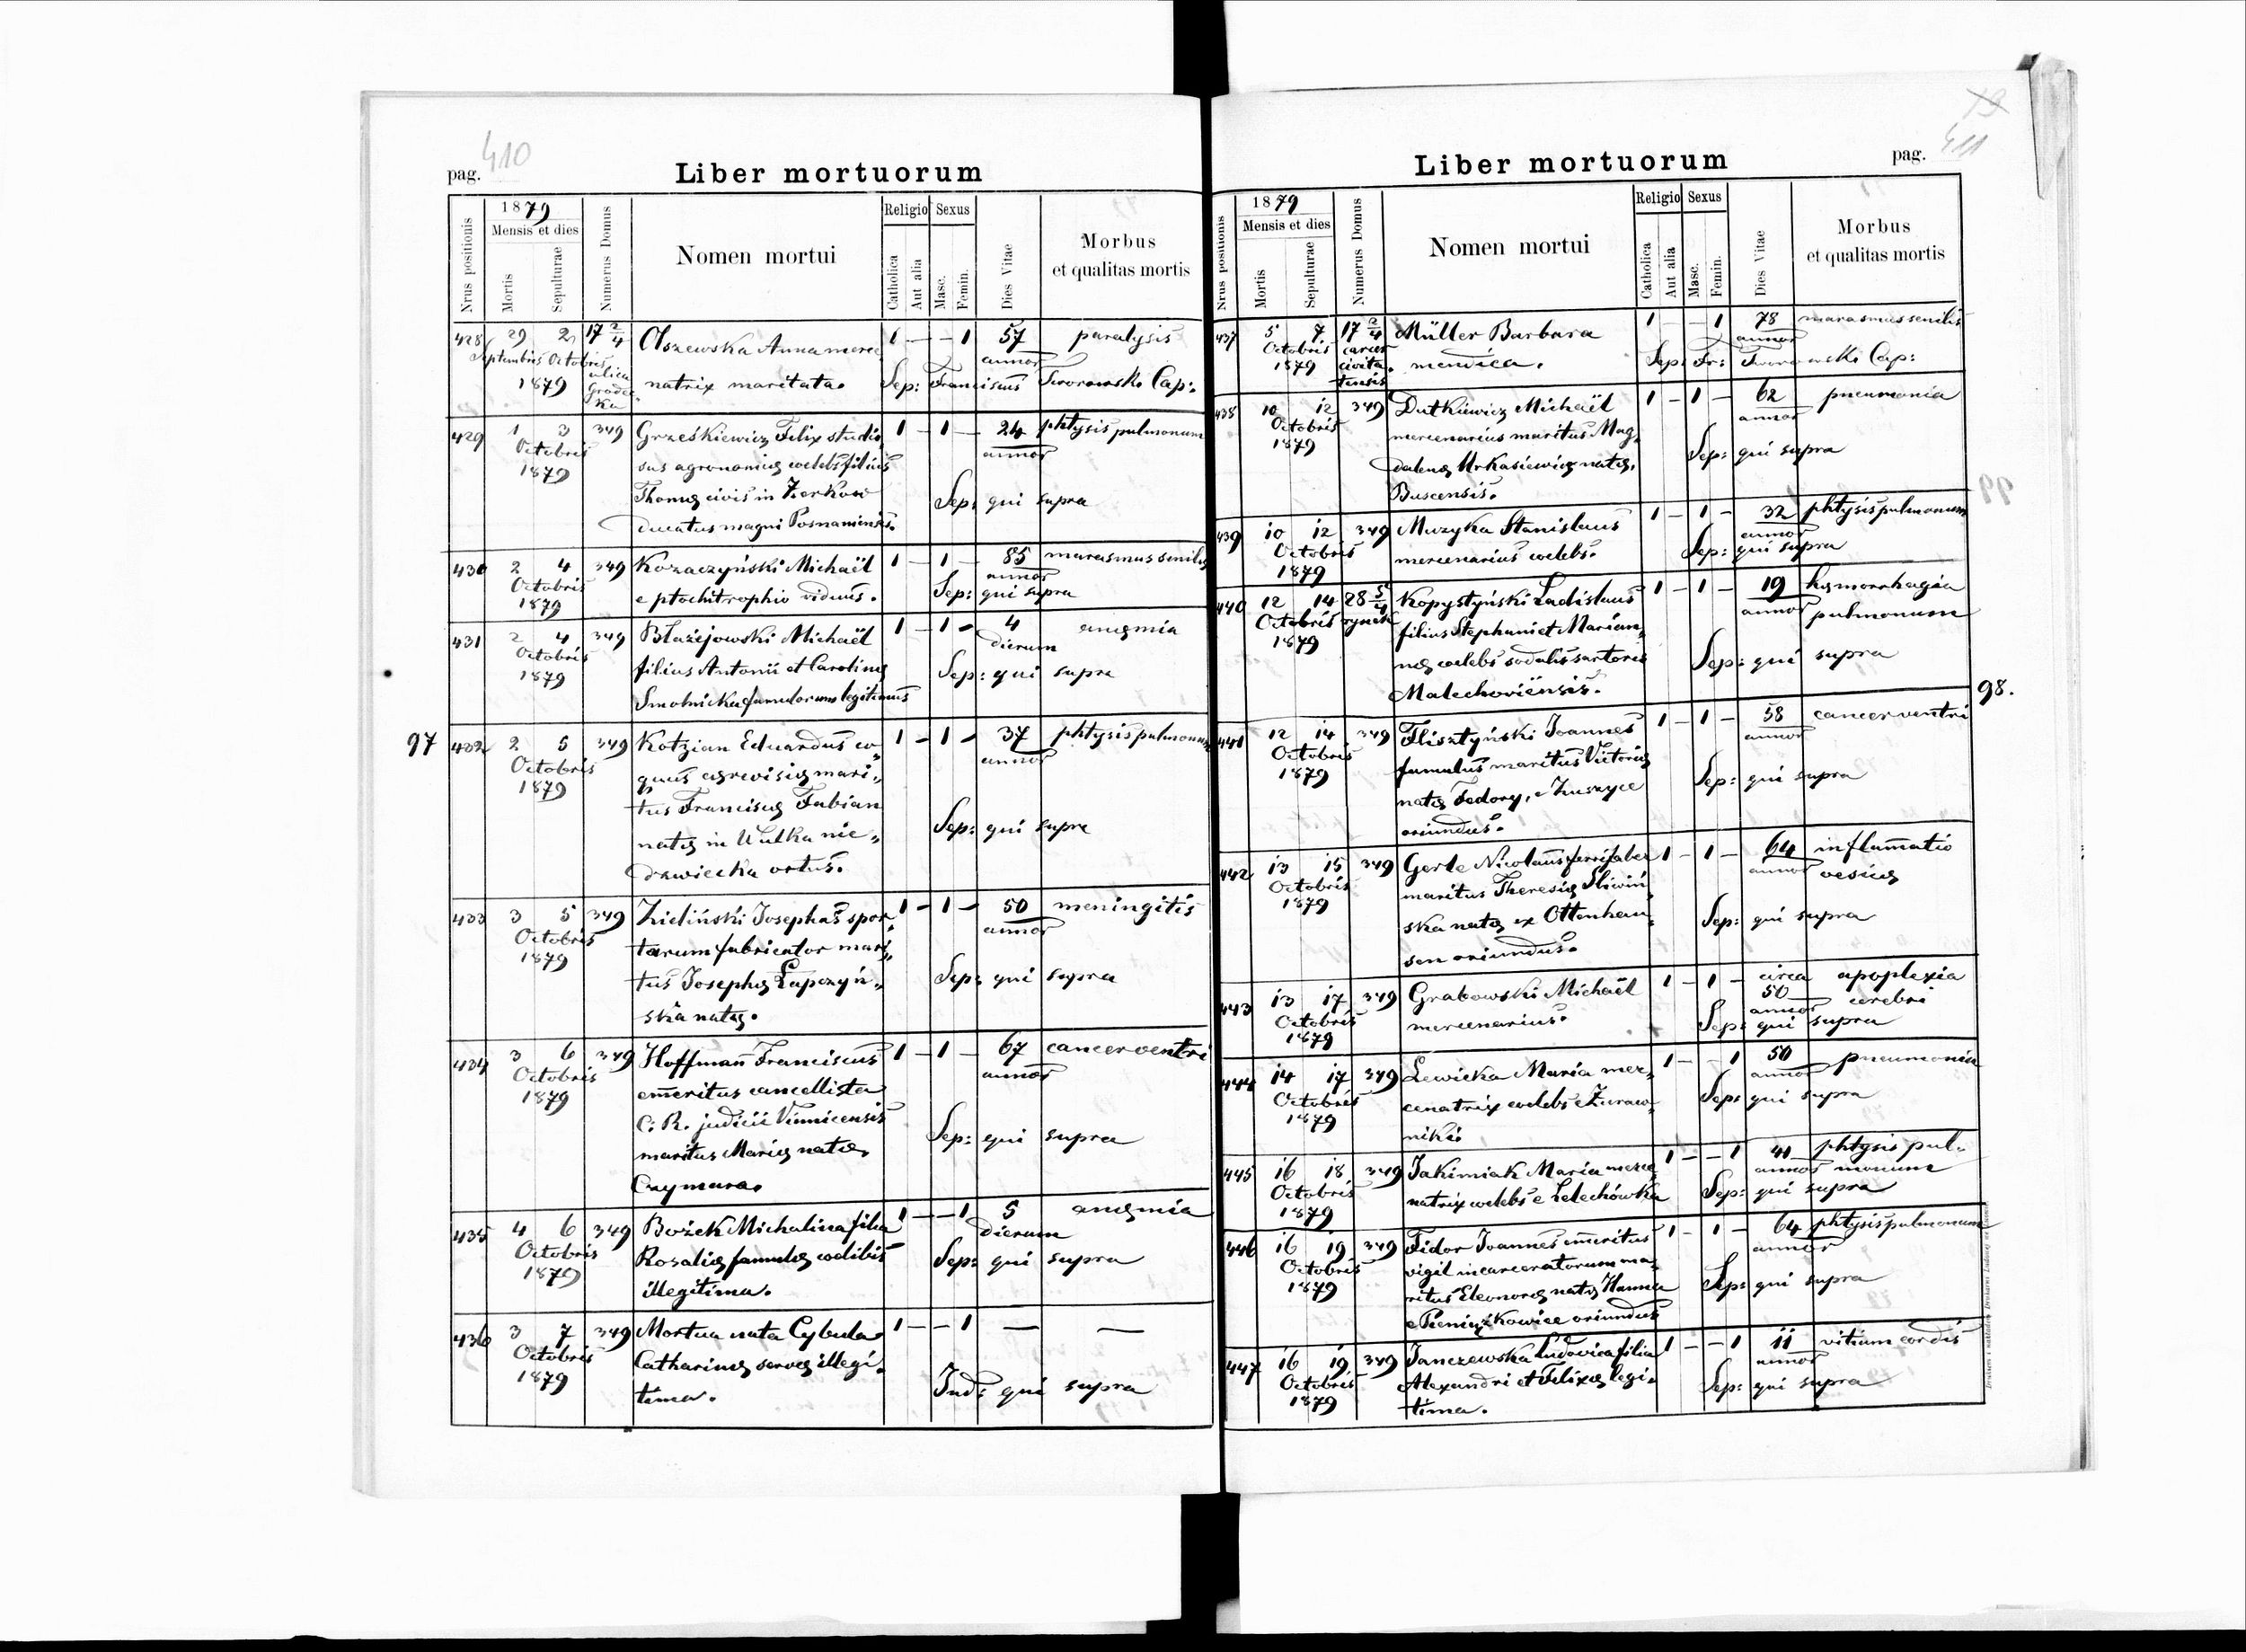 410
pag.
Liber mortuorum
1879
Mensis et dies
Religio Sexus
Nrus positionis
Mortis
Sepulturae
Numerus Domus
Nomen mortui
Catholica
Aut alia
Masc.
Femin.
Dies Vitae
Morbus
et qualitas mortis
428 29 2 17 2/4 Olszewska Anna merce 1 — — 1 57 paralysis
Septembris Octobris annor
1879 ulica Grodec ka natrix maritata. Sep: Franciscus Tworowski Cap:
429 1 3 349 Grześkiewicz Felix studio 1 — 1 — 24 phtysis pulmonum
Octobris sus agronomiæ coelebs filius annor
1879 Thomæ civis in Zerkow Sep: qui supra
ducatus magni Posnaniensis.
430 2 4 349 Kozaczyński Michaël 1 — 1 — 85 marasmus senilis
Octobris annor
1879 e ptochitrophio viduus. Sep: qui supra
431 2 4 349 Błażejowski Michaël 1 — 1 — 4 anæmia
Octobris dierum
1879 filius Antonii et Carolinæ Sep: qui supra
Smolnicka famulorum legitimus
97 432 2 5 349 Kotzian Eduardus co 1 — 1 — 37 phtysis pulmonum
Octobris quus cerevisiæ mari annor
1879 tus Franciscæ Fabian
natæ in Wulka nie Sep: qui supra
drawiecka ortus.
433 3 5 349 Zieliński Josephus spor 1 — 1 — 50 meningitis
Octobris tarum fabricator mari annor
1879 tus Josephæ Łapczyń Sep: qui supra
ska natæ.
434 3 6 349 Hoffmann Franciscus 1 — 1 — 67 cancer ventri
Octobris emeritus cancellista annor
1879 C: R. judicii Vinnicensis
maritus Mariæ natæ Sep: qui supra
Czymara.
435 4 6 349 Bożek Michalina filia 1 — — 1 5 anæmia
Octobris dierum
1879 Rosaliæ famulæ coelibis Sep: qui supra
illegitima.
436 3 7 349 Mortua nata Cybula 1 — — 1 — —
Octobris Catharinæ servæ illegi
1879 tima. Ind: qui supra
411
pag.
Liber mortuorum
1879
Mensis et dies
Religio Sexus
Nrus positionis
Mortis
Sepulturae
Numerus Domus
Nomen mortui
Catholica
Aut alia
Masc.
Femin.
Dies Vitae
Morbus
et qualitas mortis
437 5 7 17 2/4 Müller Barbara 1 — — 1 78 marasmus senilis
Octobris carcer annor
1879 civita tensis mendica. Sep: Fr: Tworowski Cap:
438 10 12 349 Dutkiewicz Michaël 1 — 1 — 62 pneumonia
Octobris mercenarius maritus Mag annor
1879 dalenæ Urkasiewicz natæ, Sep: qui supra
Buscensis.
439 10 12 349 Muzyka Stanislaus 1 — 1 — 32 phtysis pulmonum
Octobris annor
1879 mercenarius coelebs. Sep: qui supra
440 12 14 28 5/4 Kopystyński Ladislaus 1 — 1 — 19 hæmorrhagia
Octobris rynek filius Stephani et Marian annor pulmonum
1879 næ coelebs sodalis sartoris Sep: qui supra
Malechoviensis.
98.
441 12 14 349 Flisztyński Joannes 1 — 1 — 58 cancer ventri
Octobris famulus maritus Victoriæ annor
1879 natæ Fedory, e Zuszyce Sep: qui supra
oriundus.
442 13 15 349 Gerle Nicolaus ferrifaber 1 — 1 — 64 inflamatio
Octobris maritus Theresiæ Śliwiń annor vesicæ
1879 ska natæ ex Ottenhau Sep: qui supra
sen oriundus.
443 13 17 349 Grabowski Michaël 1 — 1 — circa 50 apoplexia
Octobris annor cerebri
1879 mercenarius. Sep: qui supra
444 14 17 349 Lewicka Maria mer 1 — — 1 50 pneumonia
Octobris cenatrix coelebs e Żuraw annor
1879 niki. Sep: qui supra
445 16 18 349 Jakimiak Maria merce 1 — — 1 41 phtysis pul
Octobris annor monum
1879 natrix coelebs e Lelechówka Sep: qui supra
446 16 19 349 Fidor Joannes emeritus 1 — 1 — 64 phtysis pulmonum
Octobris vigil incarceratorum ma annor
1879 ritus Eleonoræ natæ Hanna Sep: qui supra
e Pieniążkowice oriundus
447 16 19 349 Janczewska Ludovica filia 1 — — 1 11 vitium cordis
Octobris Alexandri et Felixæ legi annor
1879 tima. Sep: qui supra